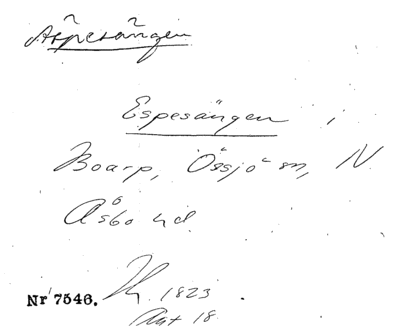 Äspesängen
Espesängen i
Boarp, Össjö sn, N
Åsbo hd.
Nr 7546. Hy. 1823
Akt 18